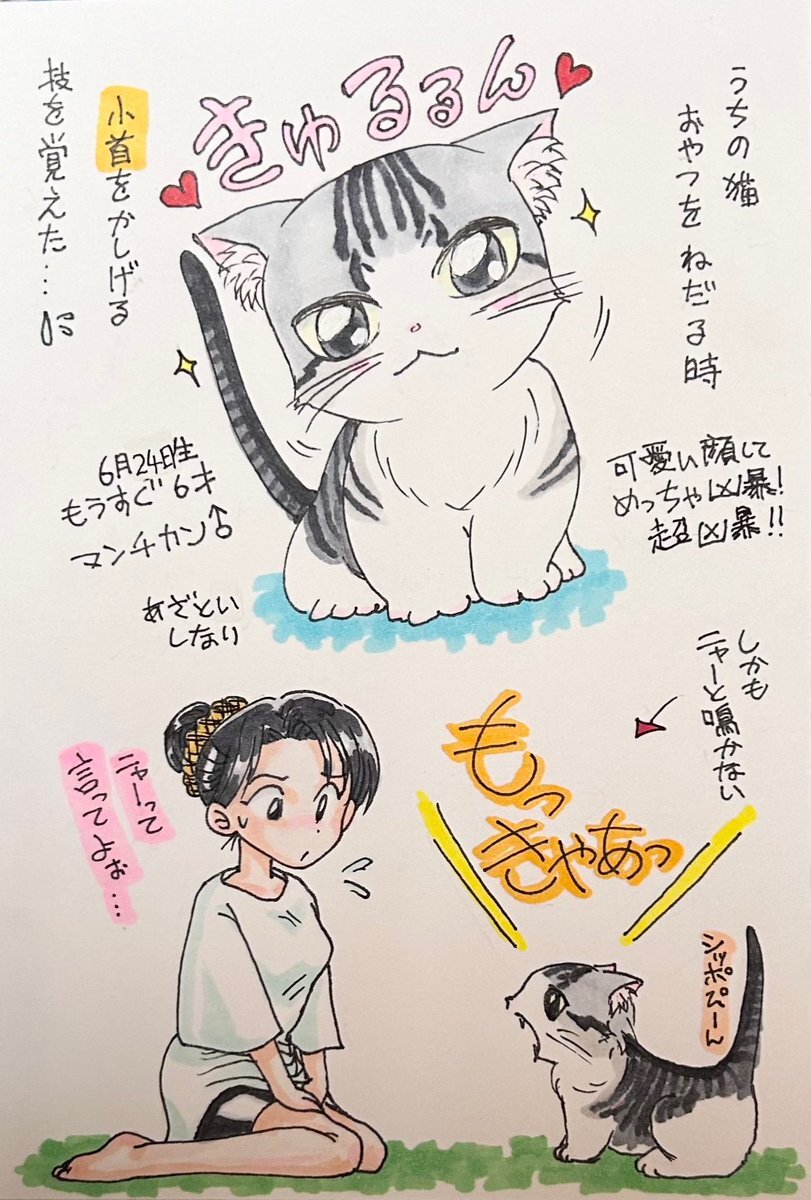 うちの猫
おやつをねだる時
きゅるるん
小首をかしげる
技を覚えた…
可愛い顔して
めっちゃ凶暴!
超凶暴!!
6月24日生
もうすぐ6才
マンチカン♂
あざとい
しなり
しかも
ニャーと鳴かない
もっ
きゃあっ
シッポぴーん
ニャーって
言ってよぉ…